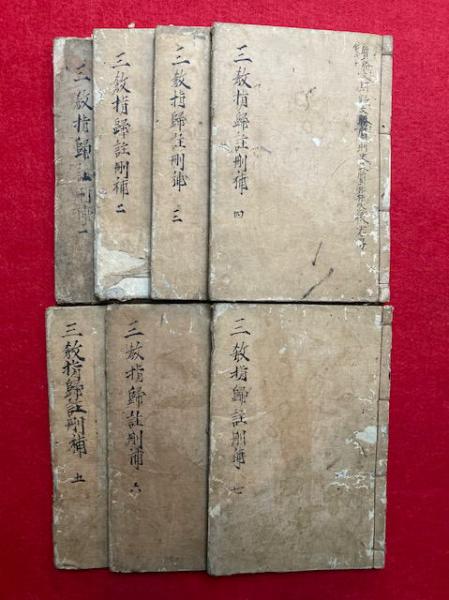 三教指歸註刪補 一
三教指歸註刪補 二
三教指歸註刪補 三
三教指歸註刪補 四
三教指歸註刪補 五
三教指歸註刪補 六
三教指歸註刪補 七